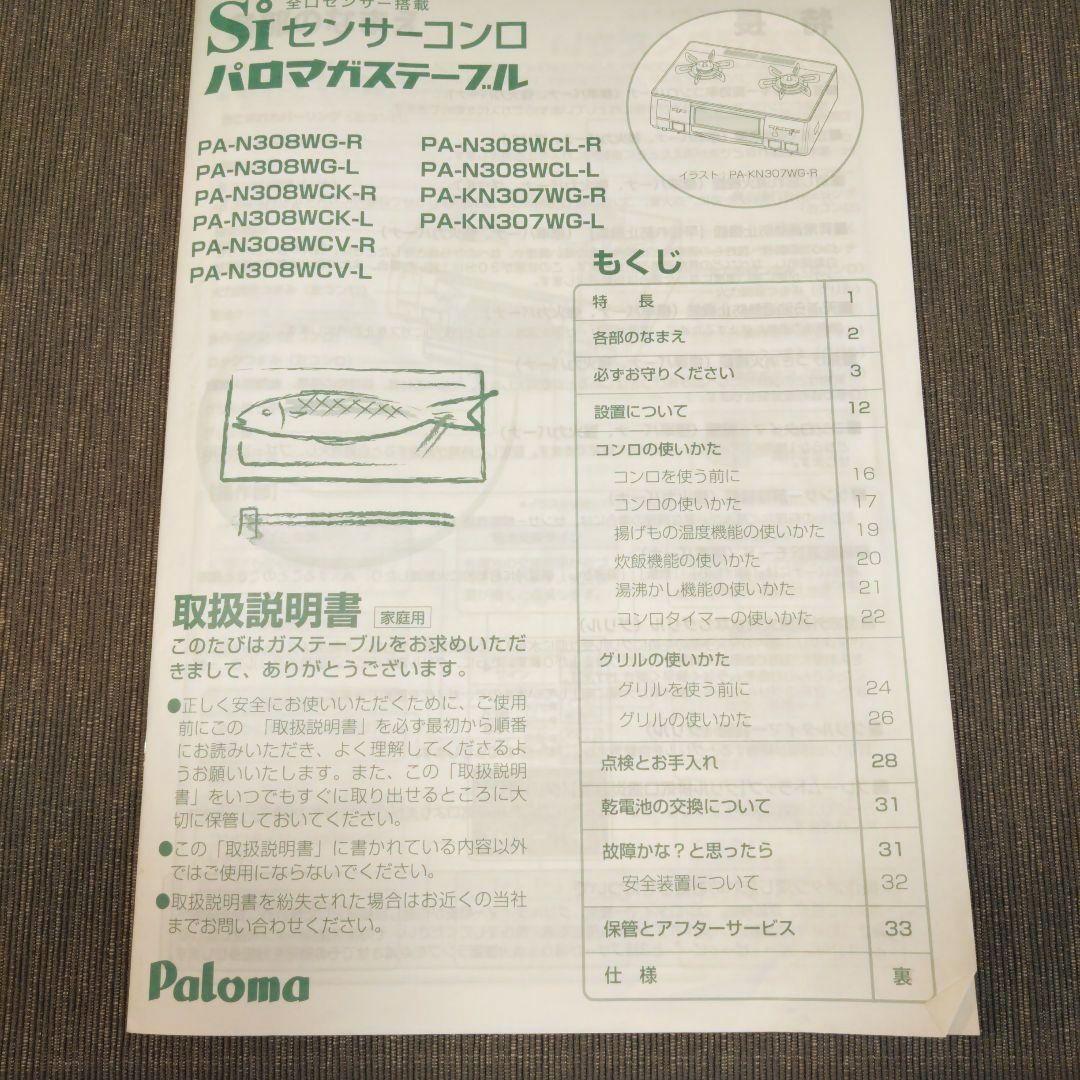 全口センサー搭載
Siセンサーコンロ
パロマガステーブル
PA-N308WG-R
PA-N308WG-L
PA-N308WCK-R
PA-N308WCK-L
PA-N308WCV-R
PA-N308WCV-L
PA-N308WCL-R
PA-N308WCL-L
PA-KN307WG-R
PA-KN307WG-L
イラスト：PA-KN307WG-R
取扱説明書 家庭用
このたびはガステーブルをお求めいただ
きまして、ありがとうございます。
●正しく安全にお使いいただくために、ご使用
前にこの「取扱説明書」を必ず最初から順番
にお読みいただき、よく理解してくださるよ
うお願いいたします。また、この「取扱説明
書」をいつでもすぐに取り出せるところに大
切に保管しておいてください。
●この「取扱説明書」に書かれている内容以外
ではご使用にならないでください。
●取扱説明書を紛失された場合はお近くの当社
までお問い合わせください。
Paloma
もくじ
特 長 1
各部のなまえ 2
必ずお守りください 3
設置について 12
コンロの使いかた
コンロを使う前に 16
コンロの使いかた 17
揚げもの温度機能の使いかた 19
炊飯機能の使いかた 20
湯沸かし機能の使いかた 21
コンロタイマーの使いかた 22
グリルの使いかた
グリルを使う前に 24
グリルの使いかた 26
点検とお手入れ 28
乾電池の交換について 31
故障かな？と思ったら 31
安全装置について 32
保管とアフターサービス 33
仕 様 裏